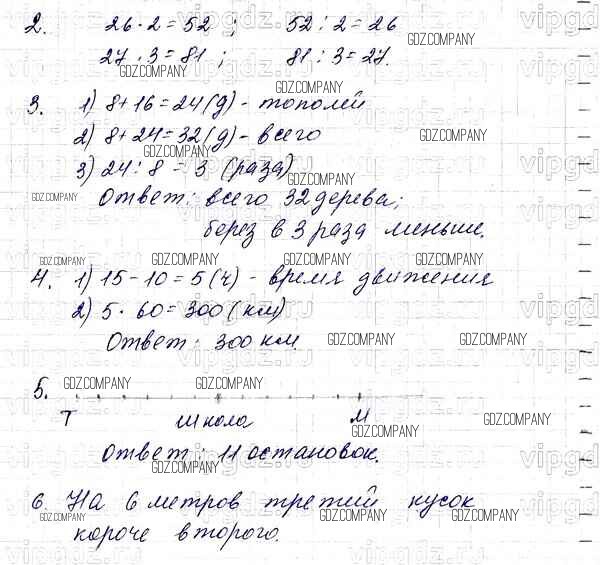 2. 26 · 2 = 52 ; 52 : 2 = 26
27 · 3 = 81 ; 81 : 3 = 27.
3. 1) 8 + 16 = 24 (д) - тополей
2) 8 + 24 = 32 (д) - всего
3) 24 : 8 = 3 (раза)
Ответ: всего 32 дерева;
берез в 3 раза меньше.
4. 1) 15 - 10 = 5 (ч) - время движения
2) 5 · 60 = 300 (км)
Ответ: 300 км.
5.
Т школа М
Ответ: 11 остановок.
6. На 6 метров третий кусок
короче второго.
GDZ.COMPANY
vipgdz.ru